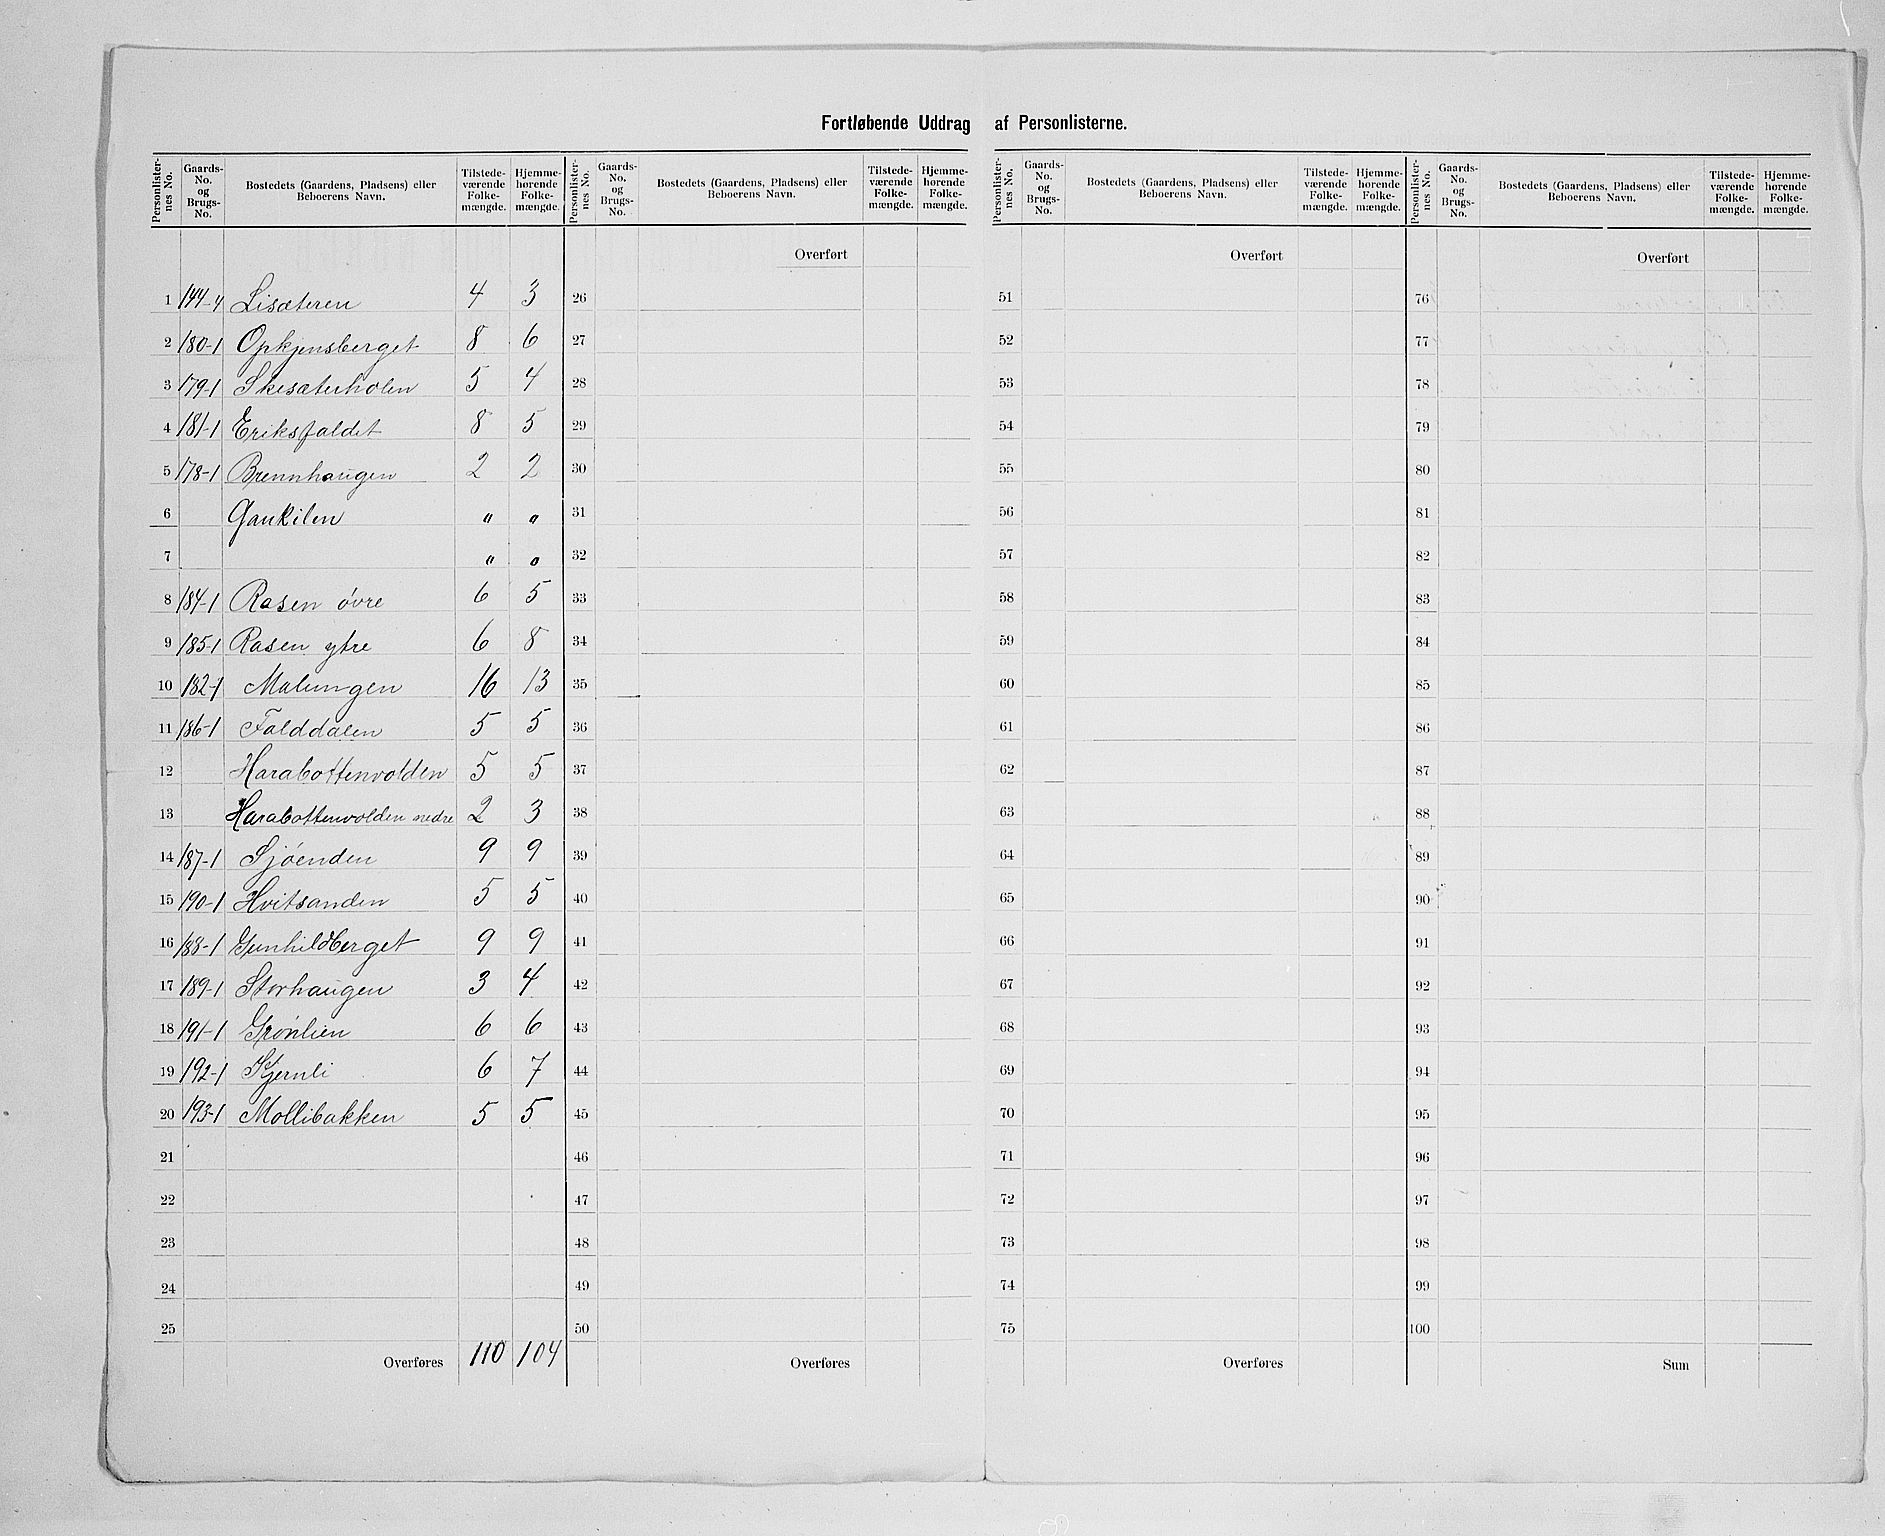 Fortløbende Uddrag af Personlisterne.
Personlister-nes No. Gaards-No. og Brugs-No. Bostedets (Gaardens, Pladsens) eller Beboerens Navn. Tilstede-værende Folke-mængde. Hjemme-hørende Folke-mængde.
Personlister-nes No. Gaards-No. og Brugs-No. Bostedets (Gaardens, Pladsens) eller Beboerens Navn. Tilstede-værende Folke-mængde. Hjemme-hørende Folke-mængde.
Personlister-nes No. Gaards-No. og Brugs-No. Bostedets (Gaardens, Pladsens) eller Beboerens Navn. Tilstede-værende Folke-mængde. Hjemme-hørende Folke-mængde.
Personlister-nes No. Gaards-No. og Brugs-No. Bostedets (Gaardens, Pladsens) eller Beboerens Navn. Tilstede-værende Folke-mængde. Hjemme-hørende Folke-mængde.
Overført Overført Overført
1 144-4 Lisæteren 4 3 26 51 76
2 180-1 Opkjensberget 8 6 27 52 77
3 179-1 Skisæterholen 5 4 28 53 78
4 181-1 Eriksfaldet 8 5 29 54 79
5 178-1 Brennhaugen 2 2 30 55 80
6 Gaukilen " " 31 56 81
7 " " 32 57 82
8 184-1 Rasen övre 6 5 33 58 83
9 185-1 Rasen ytre 6 8 34 59 84
10 182-1 Malungen 16 13 35 60 85
11 186-1 Falddalen 5 5 36 61 86
12 Harabottenvolden 5 5 37 62 87
13 Harabottenvolden nedre 2 3 38 63 88
14 187-1 Sjöenden 9 9 39 64 89
15 190-1 Hvitsanden 5 5 40 65 90
16 188-1 Gunhildberget 9 9 41 66 91
17 189-1 Storhaugen 3 4 42 67 92
18 191-1 Grönlien 6 6 43 68 93
19 192-1 Kjernli 6 7 44 69 94
20 193-1 Mollibakken 5 5 45 70 95
21 46 71 96
22 47 72 97
23 48 73 98
24 49 74 99
25 50 75 100
Overføres 110 104 Overføres Overføres Sum